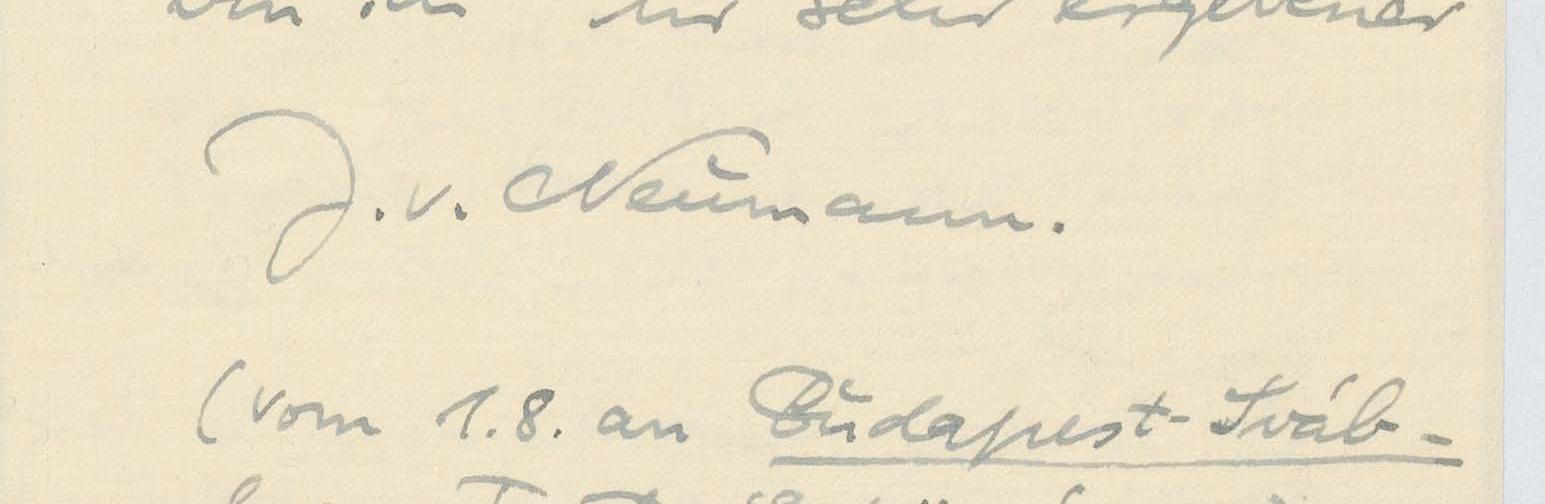 bin ich Ihr sehr ergebener
J. v. Neumann.
(vom 1.8. an Budapest-Sváb-